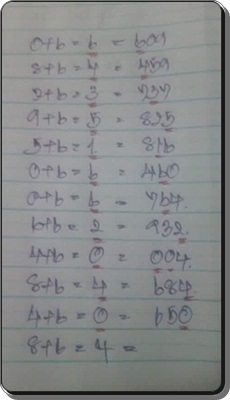 0+6 = 6 = 609
8+6 = 4 = 459
7+6 = 3 = 737
9+6 = 5 = 825
5+6 = 1 = 816
0+6 = 6 = 460
0+6 = 6 = 764.
6+6 = 2 = 932.
4+6 = 0 = 004.
8+6 = 4 = 684.
4+6 = 0 = 650
8+6 = 4 =